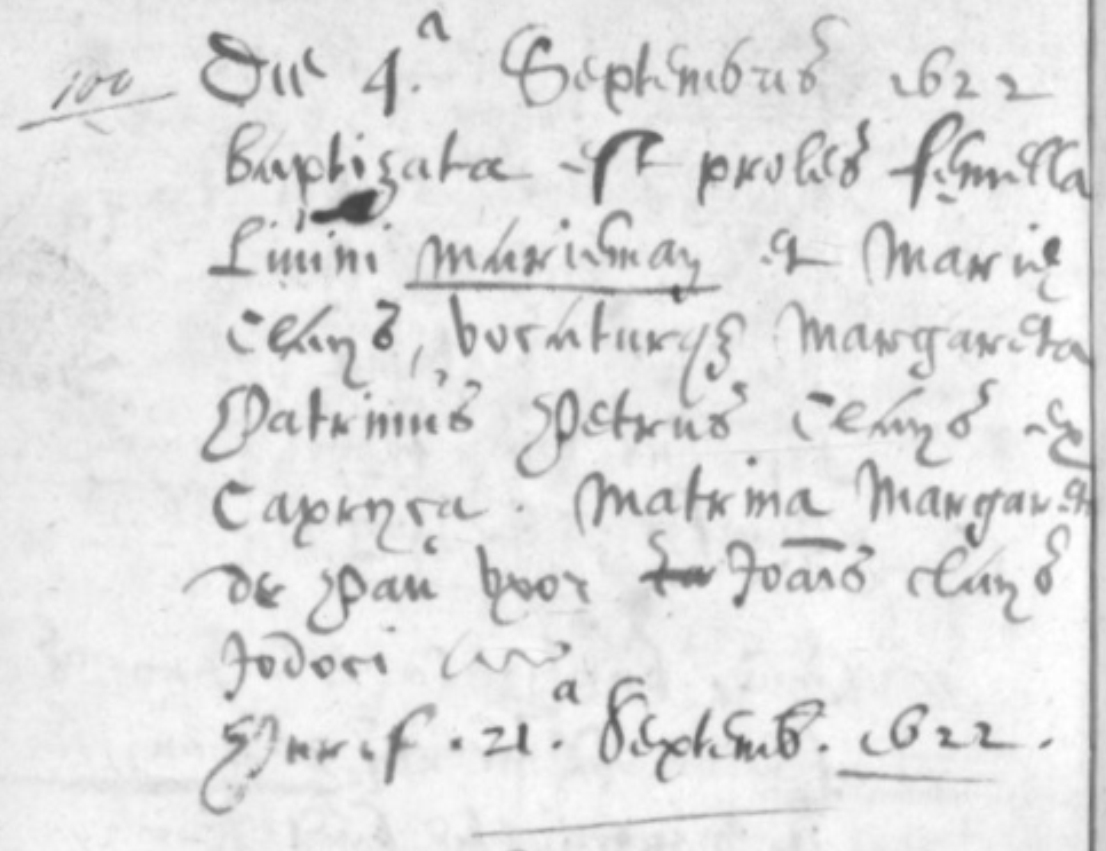 100 Die 4.a Septembris 1622
baptizata est proles femella
Livini et Marie
Claus, vocaturq3 Margareta
Patrinus Petrus Claus ex
Capryca. Matrina Margareta
de Pau uxor Joānis Claus
Jodoci
Purif. 21.a Septemb. 1622.